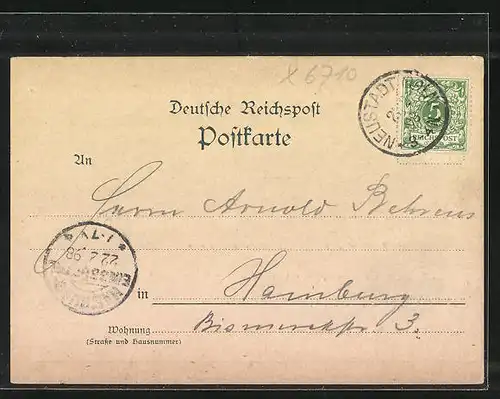 x 6710
Deutsche Reichspost
Postkarte
NEUSTADT
5
REICHSPOST
An
Herrn Arnold Behrens
1-7V
22.2.98
in Hamburg
Wohnung Bismarckstr 3.
(Straße und Hausnummer)